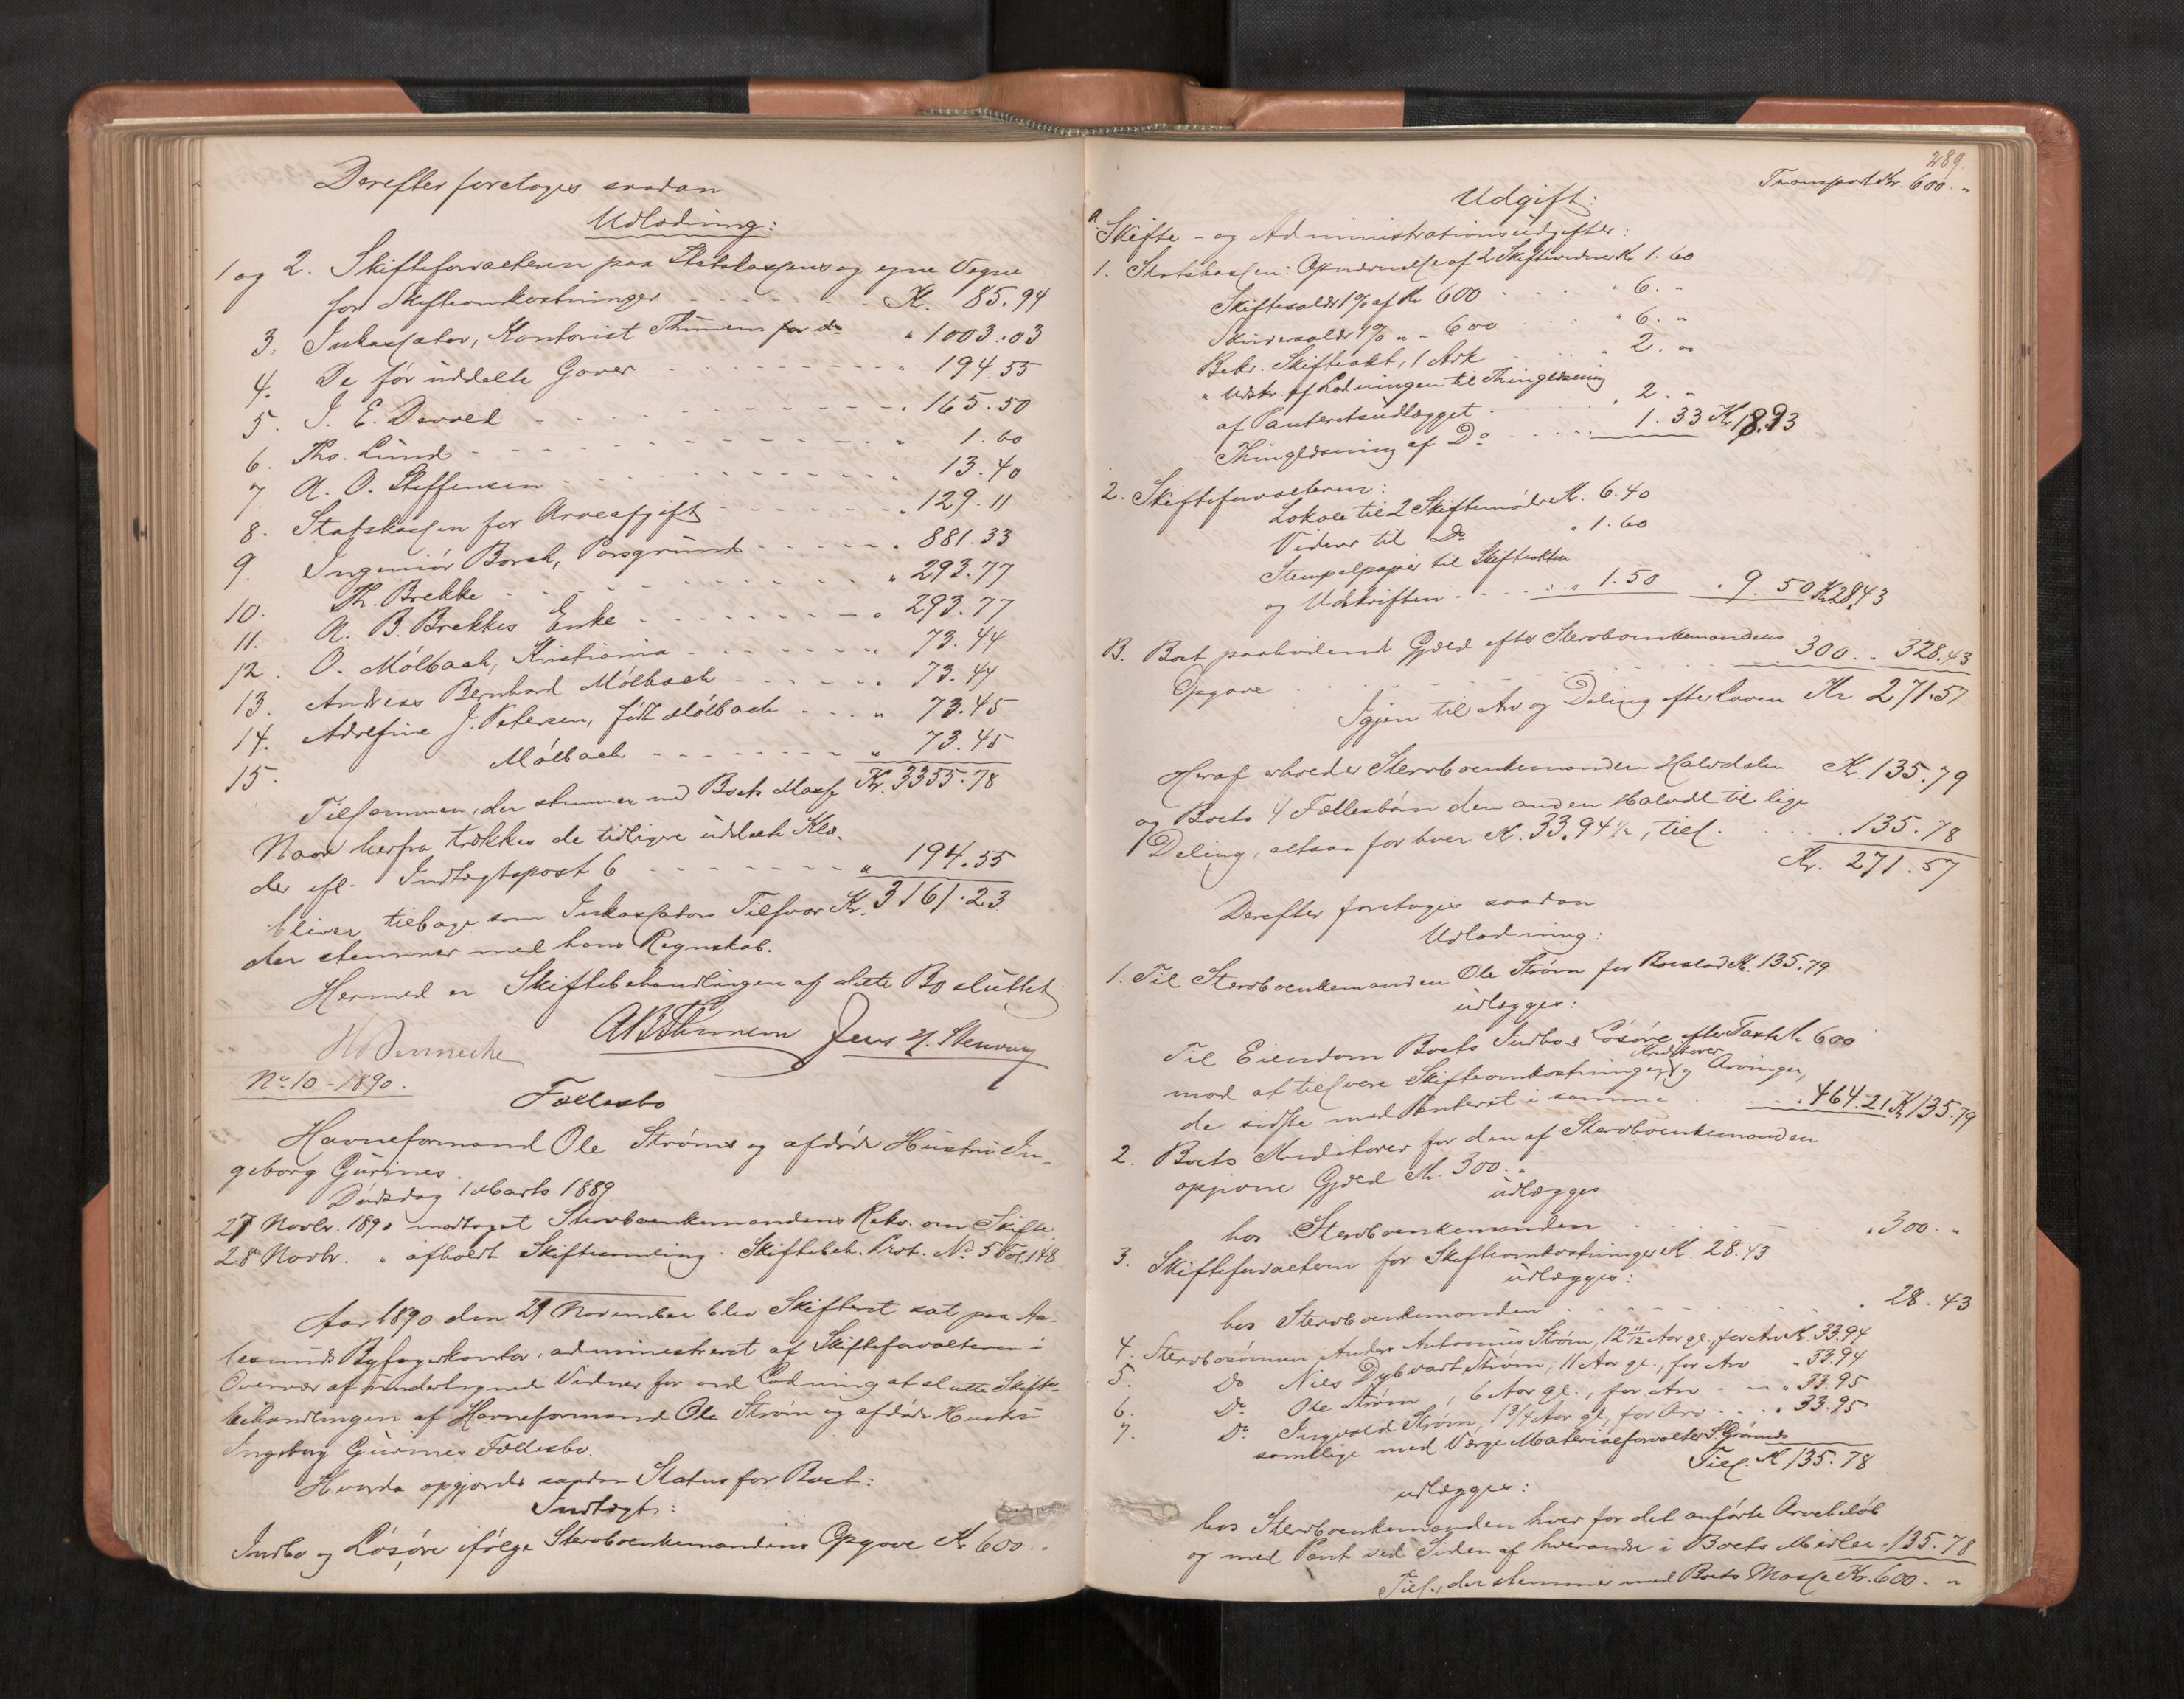 Derefter foretoges saadan
Udlodning:
1 og 2. Skifteforvalteren paa Statskassens og egne Vegne
for Skifteomkostninger - - - - Kr. 85.94
3. Inkassator, Kontorist Thinnem for do " 1003.03
4. De før uddelte Gaver - - - - " 194.55
5. I. E. Devold - - - - " 165.50
6. Ths. Lund - - - - " 1.60
7. A. O. Steffensen - - - - " 13.40
8. Statskassen for Arveafgift - - - - " 129.11
9. Ingeniør Borch, Porsgrund - - - - " 881.33
10. Th. Brekke - - - - " 293.77
11. A. B. Brekkes Enke - - - - " 293.77
12. O. Mølbach, Kristiania - - - - " 73.44
13. Andreas Bernhard Mølbach - - - - " 73.44
14. Adolfine J. Petersen, født Mølbach - - - " 73.45
15. Mølbach - - - - " 73.45
Tilsammen, der stemmer med Boets Masse Kr. 3355.78
Naar herfra trækkes de tidligere uddelte Klæ-
der efl. Indtægtspost 6 - - - - " 194.55
bliver tilbage som Inkassators Tilsvar Kr. 3161.23
der stemmer med hans Regnskab.
Hermed er Skiftebehandlingen af dette Bo sluttet
Jens H. Stenvaag
No. 10 - 1890.
Fællesbo
Havneformand Ole Strøms og afdøde Hustru In-
geborg Gurines.
Dødsdag 1 Marts 1889.
27 Novbr. 1890 modtaget Stervboenkemandens Rekv. om Skifte.
28 Novbr. " afholdt Skiftesamling. Skiftebeh. Prot. No 5 Fol. 148
Aar 1890 den 29 November blev Skifteret sat paa Aa-
lesunds Byfogedkontor, administreret af Skifteforvalteren i
Overvær af undertegnede Vidner for ved Lodning at slutte Skifte-
behandlingen af Havneformand Ole Strøm og afdøde Hustru
Ingeborg Gurines Fællesbo.
Hvorda opgjordes saadan Status for Boet:
Indtægt:
Indbo og Løsøre ifølge Stervboenkemandens Opgave Kr 600. "
289.
Transport Kr. 600. "
Udgift:
A. Skifte- og Administrationsudgifter:
1. Statskassen: Opnævnelse af 2 Skiftevidner Kr. 1.60
Skiftesalær 1% af Kr 600 - - - " 6. "
Skriversalær 1% " " 600 - - - " 6. "
Bekr. Skifteakt, 1 Ark - - - " 2. "
" Udskr. af Lodningen til Thinglæsning
af Panteretsudlægget - - - " 2. "
Thinglæsning af Do - - - 1.33 Kr 18.93
2. Skifteforvalteren:
Lokale til 2 Skiftemøder Kr. 6.40
Vidner til Do " 1.60
Stempelpapir til Skifteakten
og Udskriften - - - " 1.50 " 9.50 Kr 28.43
B. Boet paahvilende Gjæld efter Stervboenkemandens
Opgave - - - - 300. " 328.43
Igjen til Arv og Deling efter Loven Kr 271.57
Heraf erholder Stervboenkemanden Halvdelen Kr. 135.79
og Boets 4 Fællesbørn den anden Halvdel til lige
Deling, altsaa for hver Kr. 33.94 1/2, tils. - - - " 135.78
Kr. 271.57
Derefter foretoges saadan
Udlodning:
1. Til Stervboenkemanden Ole Strøm for Boeslod Kr. 135.79
udlægges:
Til Eiendom Boets Indbo & Løsøre efter Taxt Kr 600
mod at tilsvare Skifteomkostninger, Kreditorer og Arvinger,
de sidste med Panteret i samme - - - " 464.21 Kr 135.79
2. Boets Kreditorer for den af Stervboenkemanden
opgivne Gjæld Kr. 300. "
udlægges
hos Stervboenkemanden - - - - " 300. "
3. Skifteforvalteren for Skifteomkostninger Kr. 28.43
udlægges:
hos Stervboenkemanden - - - - " 28.43
4. Stervbosønnen Anders Antonius Strøm, 12 11/12 Aar gl., for Arv Kr. 33.94
5. Do Niels Dybvart Strøm, 11 Aar gl., for Arv " 33.94
6. Do Ole Strøm, 6 Aar gl., for Arv - - " 33.95
7. Do Ingvald Strøm, 1 3/4 Aar gl., for Arv - - " 33.95
samtlige med Værge Materialforvalter
Tils. Kr 135.78
udlægges:
hos Stervboenkemanden hver for det anførte Arvebeløb
og med Pant ved Siden af hverandre i Boets Midler " 135.78
Tils., der stemmer med Boets Masse Kr. 600. "